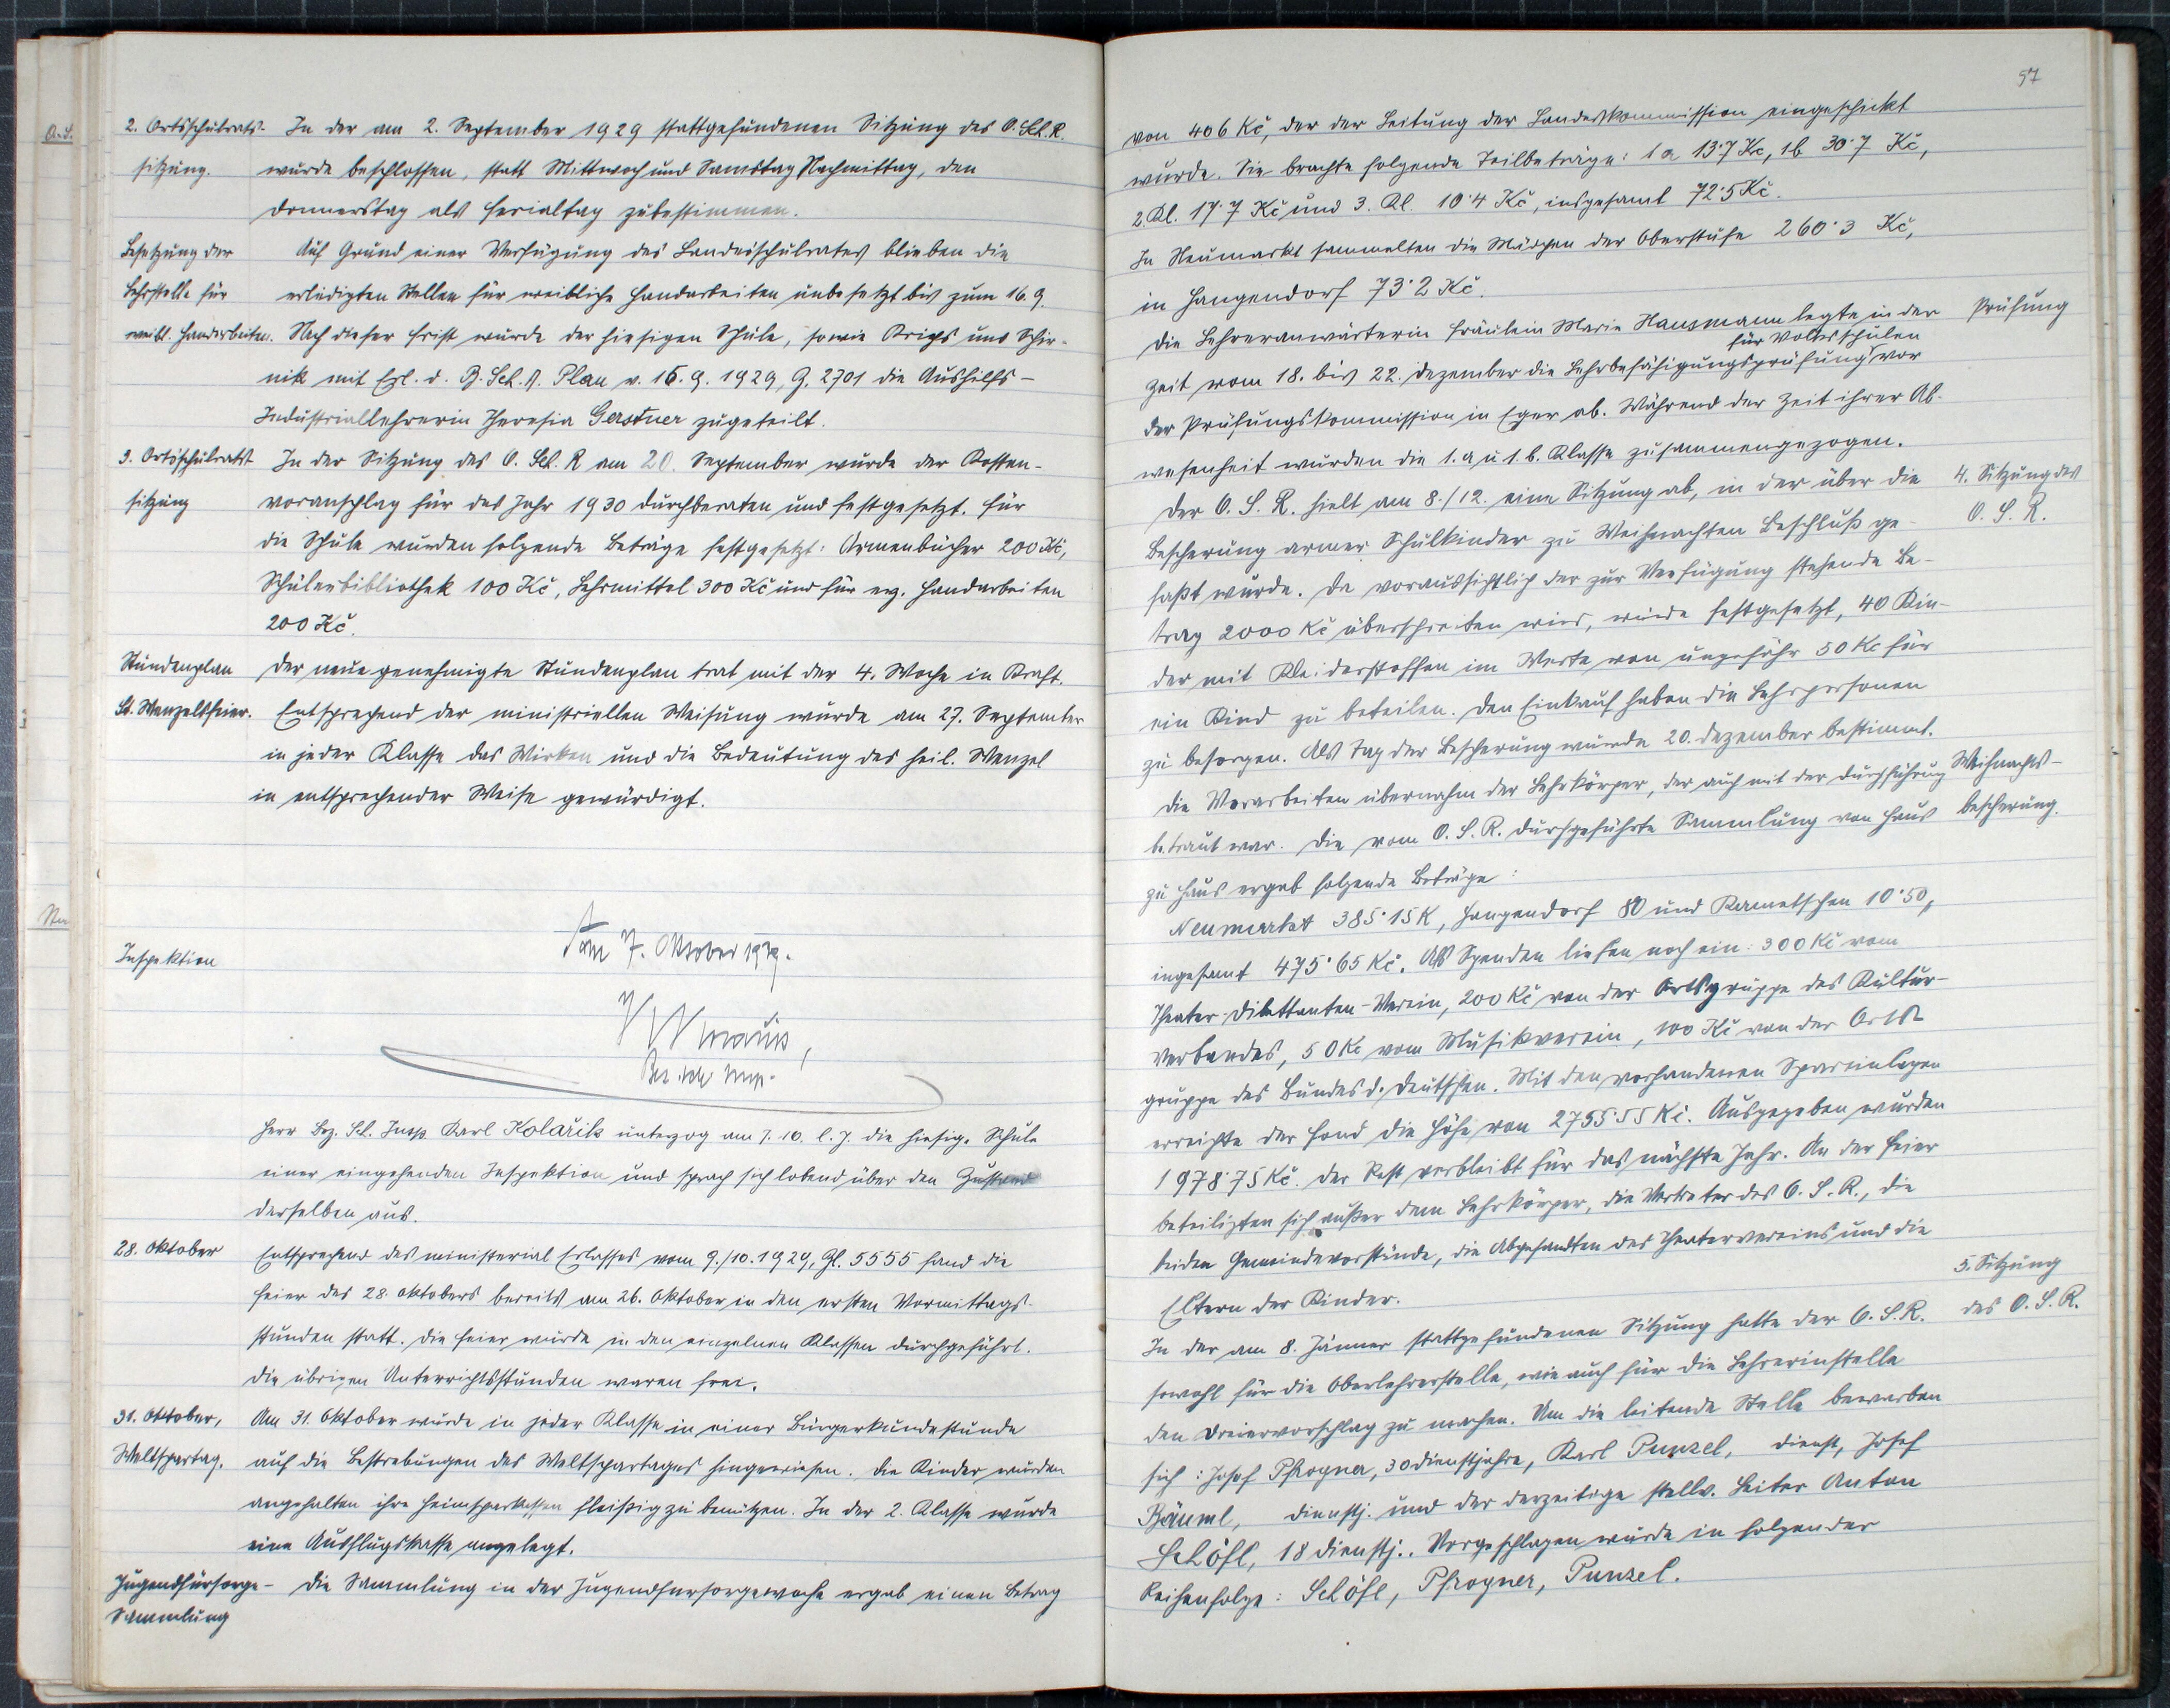 2. Ortsschulrats-
sitzung.
In der am 2. September 1929 stattgefundenen Sitzung des O. Sch. R.
wurde beschlossen, statt Mittwoch und Samstag Nachmittag, den
Donnerstag als Ferialtag zubestimmen.
Besetzung der
Lehrstelle für
weibl. Handarbeiten.
Auf Grund einer Verfügung des Landesschulrates blieben die
erledigten Stellen für weibliche Handarbeiten unbesetzt bis zum 16. 9.
Nach dieser Frist wurde der hiesigen Schule, sowie Kriegs und Schir-
nik mit Erl. d. B. Sch. A. Plan v. 16. 9. 1929, Z. 2701 die Aushilfs-
Industriallehrerin Theresia Gerstner zugeteilt.
3. Ortsschulrats
sitzung
In der Sitzung des O. Sch. R am 20. September wurde der Kosten-
voranschlag für das Jahr 1930 durchberaten und festgesetzt. Für
die Schule wurden folgende Beträge festgesetzt: Armenbücher 200 Kč,
Schülerbibliothek 100 Kč, Lehrmittel 300 Kč und für erz. Handarbeiten
200 Kč.
Stundenplan
Der neue genehmigte Stundenplan trat mit der 4. Woche in Kraft.
St. Wenzelsfeier.
Entsprechend der ministeriellen Weisung wurde am 27. September
in jeder Klasse das Wirken und die Bedeutung des heil. Wenzel
in entsprechender Weise gewürdigt.
Inspektion
am 7. Oktober 1929.
Bez. sch. insp.
Herr Bez. Sch. Insp. Karl Kolařik unterzog am 7. 10. l. J. die hiesige Schule
einer eingehenden Inspektion und sprach sich lobend über den Zustand
derselben aus.
28. Oktober
Entsprechend des ministerial Erlasses vom 9./10. 1929, Zl. 5555 fand die
Feier des 28. Oktobers bereits am 26. Oktober in den ersten Vormittags-
stunden statt. Die Feier wurde in den einzelnen Klassen durchgeführt.
Die übrigen Unterrichtsstunden waren frei.
31. Oktober,
Weltspartag.
Am 31. Oktober wurde in jeder Klasse in einer Bürgerkundestunde
auf die Bestrebungen des Weltspartages hingewiesen. Die Kinder wurden
angehalten ihre Heimsparkassen fleißig zu benützen. In der 2. Klasse wurde
eine Ausflugskasse angelegt.
Jugendfürsorge-
Sammlung
Die Sammlung in der Jugendfürsorgewoche ergab einen Betrag
57
von 406 Kč, der der Leitung der Landeskommission eingeschickt
wurde. Sie brachte folgende Teilbeträge: 1a 13·7 Kč, 1b 30·7 Kč,
2. Kl. 17·7 Kč und 3. Kl. 10·4 Kč, insgesamt 72·5 Kč.
In Neumarkt sammelten die Mädchen der Oberstufe 260·3 Kč,
in Hangendorf 73·2 Kč.
Prüfung
Die Lehreranwärterin Fräulein Marie Hausmann legte in der
Zeit vom 18. bis 22. Dezember die Lehrbefähigungsprüfung für Volksschulen vor
der Prüfungskommission in Eger ab. Während der Zeit ihrer Ab-
wesenheit wurden die 1. a u. 1. b. Klasse zusammengezogen.
4. Sitzung des
O. S. R.
Der O. S. R. hielt am 8./12. eine Sitzung ab, in der über die
Bescherung armer Schulkinder zu Weihnachten Beschluß ge-
faßt wurde. Da voraussichtlich der zur Verfügung stehende Be-
trag 2000 Kč überschreiten wird, wurde festgesetzt, 40 Kin-
der mit Kleiderstoffen im Werte von ungefähr 50 Kč für
ein Kind zu beteilen. Den Einkauf haben die Lehrpersonen
zu besorgen. Als Tag der Bescherung wurde 20. Dezember bestimmt.
Weihnachts-
bescherung.
Die Vorarbeiten übernahm der Lehrkörper, der auch mit der Durchführung
betraut war. Die vom O. S. R. durchgeführte Sammlung von Haus
zu Haus ergab folgende Beträge:
Neumarkt 385·15 K, Hangendorf 80 und Rametschen 10·50,
ingesamt 475·65 Kč. Als Spenden liefen noch ein: 300 Kč vom
Theater-Dilettanten-Verein, 200 Kč von der Ortsgruppe des Kultur-
verbandes, 50 Kč vom Musikverein, 100 Kč von der Orts-
gruppe des Bundes d. Deutschen. Mit den vorhandenen Spareinlagen
erreichte der Fond die Höhe von 2755·55 Kč. Ausgegeben wurden
1978·75 Kč. Der Rest verbleibt für das nächste Jahr. An der Feier
beteiligten sich außer dem Lehrkörper, die Vertreter des O. S. R., die
beiden Gemeindevorstände, die Abgesandten des Theatervereins und die
Eltern der Kinder.
5. Sitzung
des O. S. R.
In der am 8. Jänner stattgefundenen Sitzung hatte der O. S. R.
sowohl für die Oberlehrerstelle, wie auch für die Lehrerinstelle
den Dreiervorschlag zu machen. Um die leitende Stelle bewarben
sich: Josef Pfrogner, 30 Dienstjahre, Karl Punzel, Dienst, Josef
Bäuml, Dienstj. und der derzeitige stellv. Leiter Anton
Schöfl, 18 Dienstj.. Vorgeschlagen wurde in folgender
Reihenfolge: Schöfl, Pfrogner, Punzel.